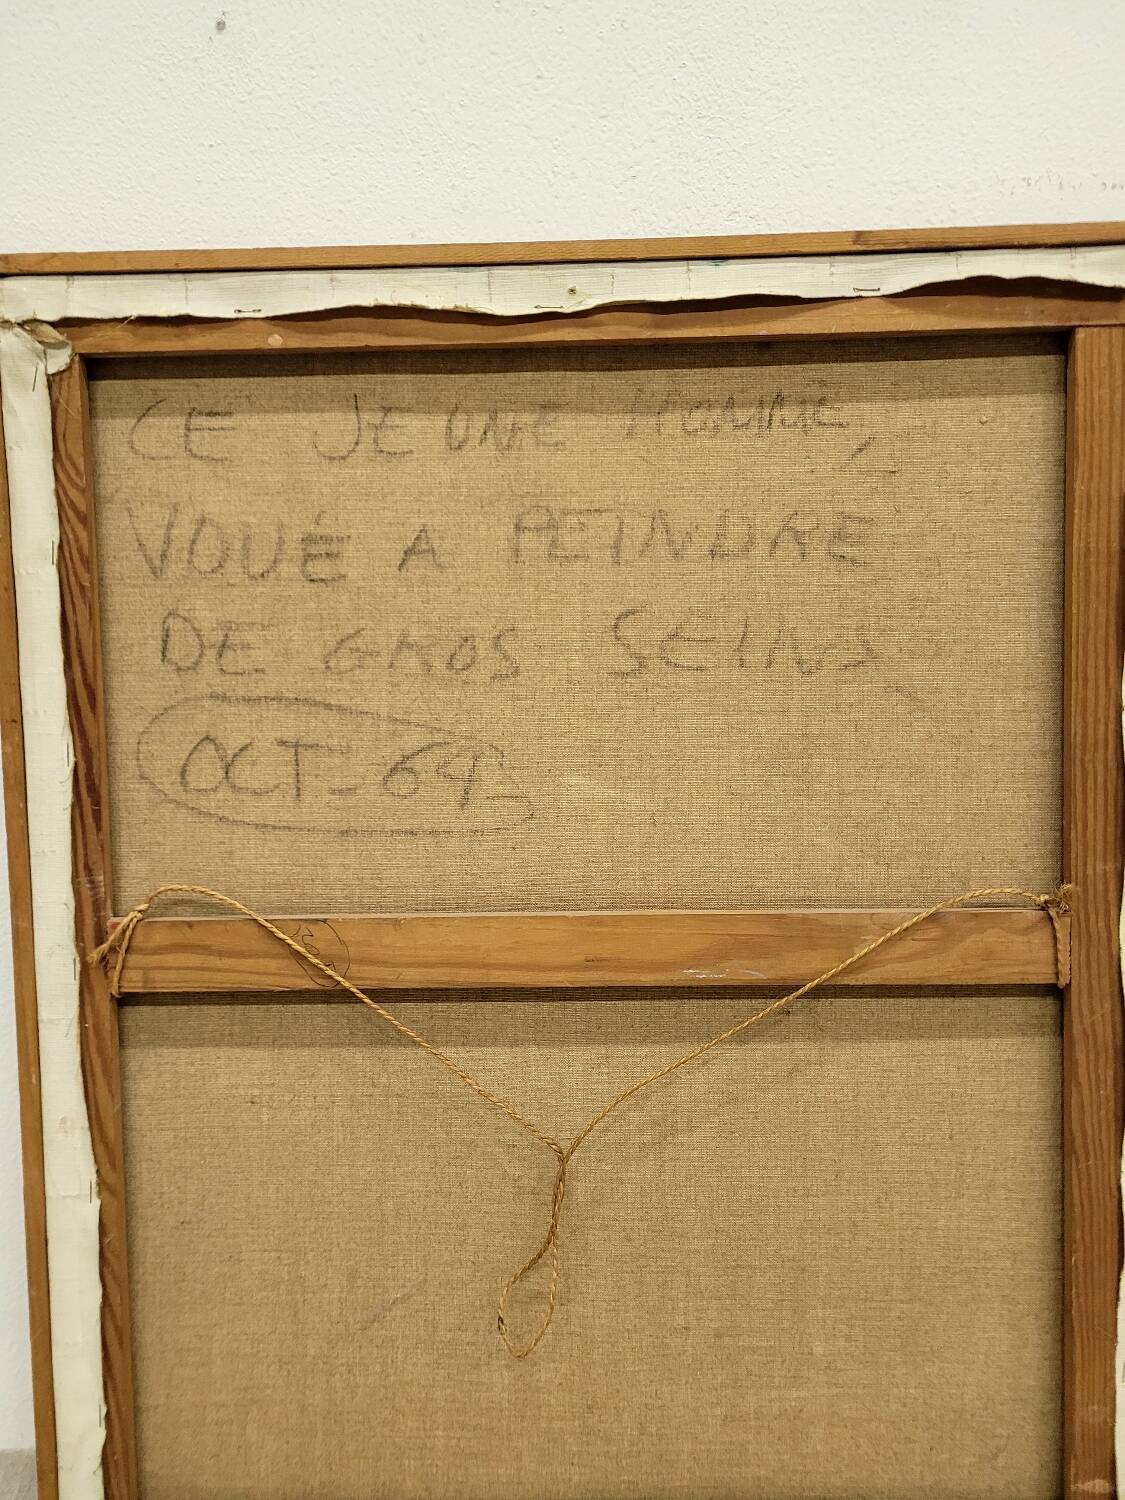 CE JEUNE HOMME,
VOUÉ A PEINDRE
DE GROS SEINS
OCT-64